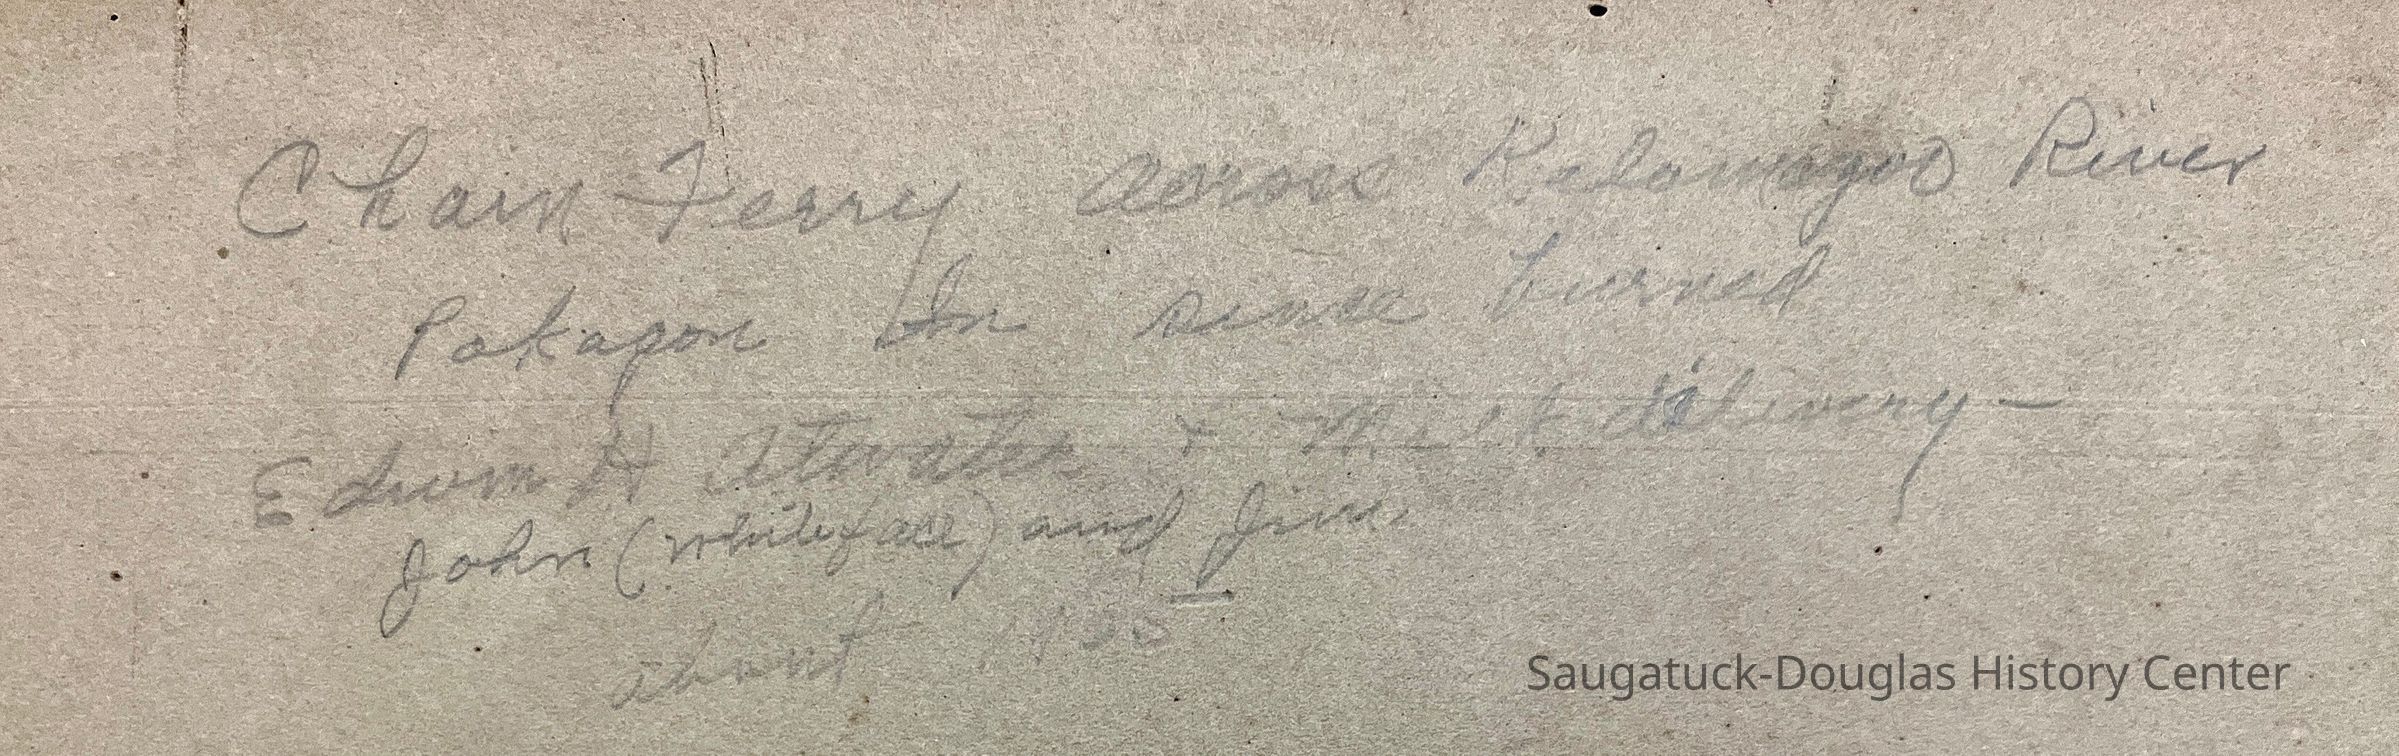 Chain Ferry across Kalamazoo River
Pokagon In sinse burned
Edwin H Atwater & Milk delivery —
John (whiteface) and Jim
about
Saugatuck-Douglas History Center